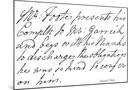 Mr. Foote presents his
Complts to Mr. Garrick
and begs with his thanks
to discharge the obligation
he was so kind to confer
on him.